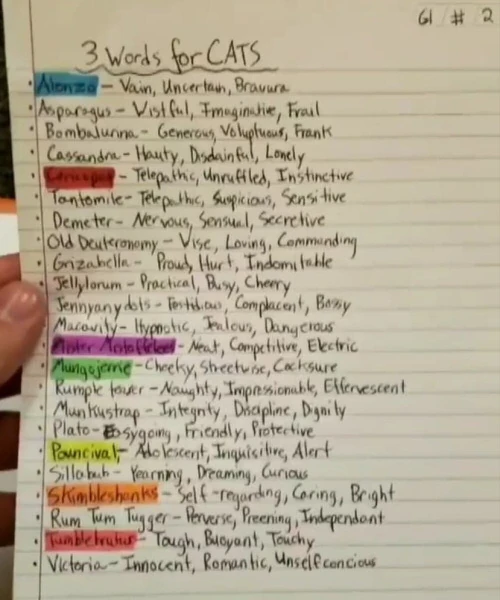 G1 # 2
3 Words for CATS
Alonzo - Vain, Uncertain, Bravura
Asparagus - Wistful, Imaginative, Frail
Bombalurina - Generous, Voluptuous, Frank
Cassandra - Hauty, Disdainful, Lonely
Coricopat - Telepathic, Unruffled, Instinctive
Tantomile - Telepathic, Suspicious, Sensitive
Demeter - Nervous, Sensual, Secretive
Old Deuteronomy - Wise, Loving, Commanding
Grizabella - Proud, Hurt, Indomitable
Jellylorum - Practical, Busy, Cheery
Jennyanydots - Fastidious, Complacent, Bossy
Macavity - Hypnotic, Jealous, Dangerous
Mister Mistoffelees - Neat, Competitive, Electric
Mungojerrie - Cheeky, Streetwise, Cocksure
Rumple teazer - Naughty, Impressionable, Effervescent
Munkustrap - Integrity, Discipline, Dignity
Plato - Easygoing, Friendly, Protective
Pouncival - Adolescent, Inquisitive, Alert
Sillabub - Yearning, Dreaming, Curious
Skimbleshanks - Self-regarding, Caring, Bright
Rum Tum Tugger - Perverse, Preening, Independant
Tumblebrutus - Tough, Buoyant, Touchy
Victoria - Innocent, Romantic, Unselfconcious